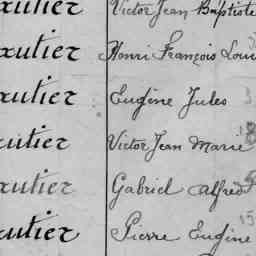 autier Victor Jean Baptiste
autier Henri François Loui
autier Eugène Jules 3
autier Victor Jean Marie 18
autier Gabriel Alfred 5
autier Pierre Eugène 15